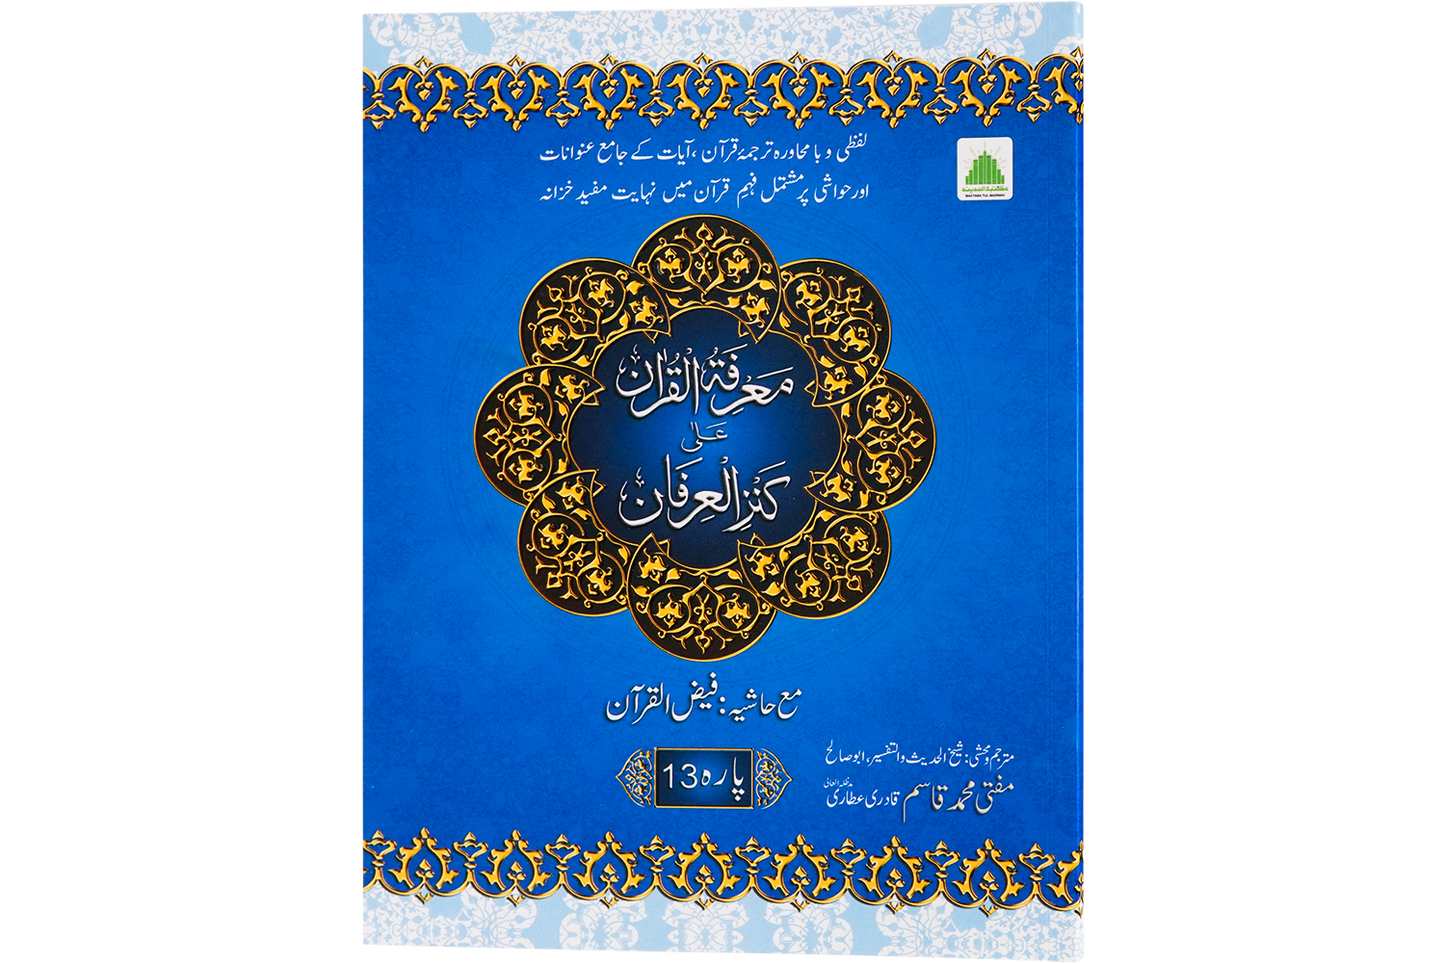 لفظی و با محاورہ ترجمۂ قرآن، آیات کے جامع عنوانات
اور حواشی پر مشتمل فہمِ قرآن میں نہایت مفید خزانہ
مکتبۃ المدینہ
MAKTABA TUL MADINAH
مَعْرِفَۃُ الْقُرْاٰن
عَلٰی
کَنْزِ الْعِرْفَان
مع حاشیہ: فیض القرآن
پارہ 13
مترجم و محشی: شیخ الحدیث والتفسیر، ابو صالح
مفتی محمد قاسم قادری عطاری مدظلہ العالی